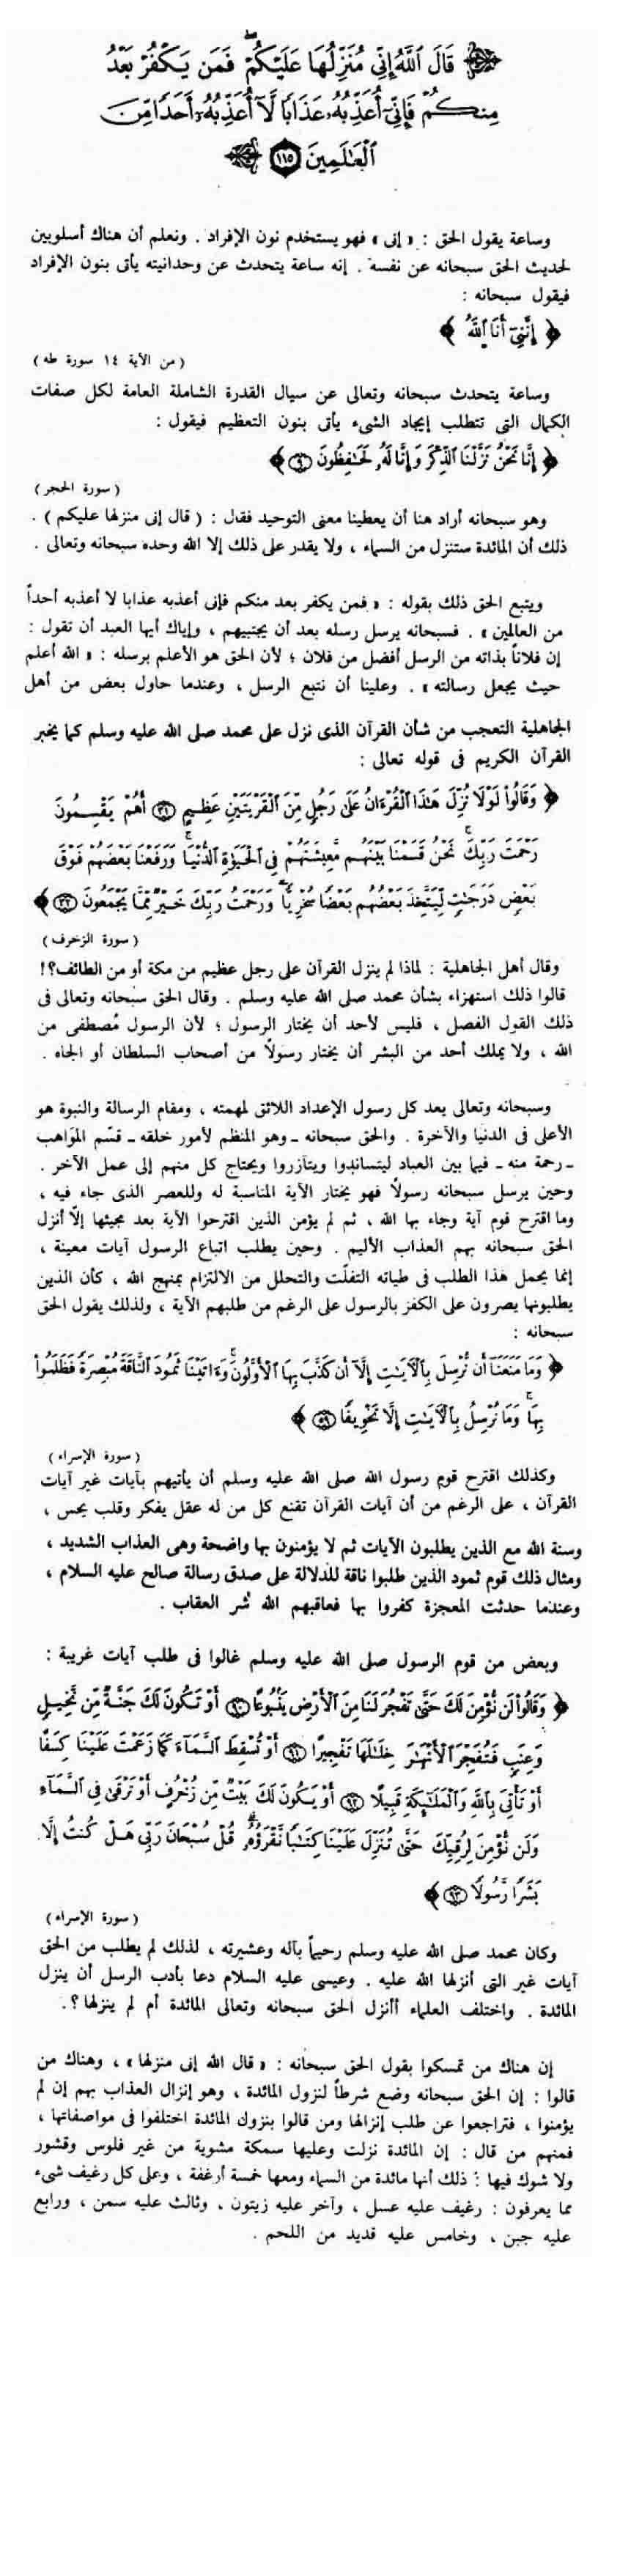 قَالَ ٱللَّهُ إِنِّى مُنَزِّلُهَا عَلَيْكُمْ ۖ فَمَن يَكْفُرْ بَعْدُ
مِنكُمْ فَإِنِّىٓ أُعَذِّبُهُۥ عَذَابًا لَّآ أُعَذِّبُهُۥٓ أَحَدًا مِّنَ
ٱلْعَٰلَمِينَ ١١٥
وساعة يقول الحق : « إنى » فهو يستخدم نون الإفراد . ونعلم أن هناك أسلوبين
لحديث الحق سبحانه عن نفسه . إنه ساعة يتحدث عن وحدانيته يأتى بنون الإفراد
فيقول سبحانه :
﴿ إِنَّنِىٓ أَنَا ٱللَّهُ ﴾
( من الآية ١٤ سورة طه )
وساعة يتحدث سبحانه وتعالى عن سيال القدرة الشاملة العامة لكل صفات
الكمال التى تتطلب إيجاد الشىء يأتى بنون التعظيم فيقول :
﴿ إِنَّا نَحْنُ نَزَّلْنَا ٱلذِّكْرَ وَإِنَّا لَهُۥ لَحَٰفِظُونَ ٩ ﴾
( سورة الحجر )
وهو سبحانه أراد هنا أن يعطينا معنى التوحيد فقال : ( قال إنى منزلها عليكم ) .
ذلك أن المائدة ستنزل من السماء ، ولا يقدر على ذلك إلا الله وحده سبحانه وتعالى .
ويتبع الحق ذلك بقوله : « فمن يكفر بعد منكم فإنى أعذبه عذابا لا أعذبه أحداً
من العالمين » . فسبحانه يرسل رسله بعد أن يجتبيهم ، وإياك أيها العبد أن تقول :
إن فلاناً بذاته من الرسل أفضل من فلان ؛ لأن الحق هو الأعلم برسله : « الله أعلم
حيث يجعل رسالته » . وعلينا أن نتبع الرسل ، وعندما حاول بعض من أهل
الجاهلية التعجب من شأن القرآن الذى نزل على محمد صلى الله عليه وسلم كما يخبر
القرآن الكريم فى قوله تعالى :
﴿ وَقَالُوا۟ لَوْلَا نُزِّلَ هَٰذَا ٱلْقُرْءَانُ عَلَىٰ رَجُلٍ مِّنَ ٱلْقَرْيَتَيْنِ عَظِيمٍ ٣١ أَهُمْ يَقْسِمُونَ
رَحْمَتَ رَبِّكَ ۚ نَحْنُ قَسَمْنَا بَيْنَهُم مَّعِيشَتَهُمْ فِى ٱلْحَيَوٰةِ ٱلدُّنْيَا ۚ وَرَفَعْنَا بَعْضَهُمْ فَوْقَ
بَعْضٍ دَرَجَٰتٍ لِّيَتَّخِذَ بَعْضُهُم بَعْضًا سُخْرِيًّا ۗ وَرَحْمَتُ رَبِّكَ خَيْرٌ مِّمَّا يَجْمَعُونَ ٣٢ ﴾
( سورة الزخرف )
وقال أهل الجاهلية : لماذا لم ينزل القرآن على رجل عظيم من مكة أو من الطائف؟!
قالوا ذلك استهزاء بشأن محمد صلى الله عليه وسلم . وقال الحق سبحانه وتعالى فى
ذلك القول الفصل ، فليس لأحد أن يختار الرسول ؛ لأن الرسول مُصطفى من
الله ، ولا يملك أحد من البشر أن يختار رسولاً من أصحاب السلطان أو الجاه .
وسبحانه وتعالى يعد كل رسول الإعداد اللائق لمهمته ، ومقام الرسالة والنبوة هو
الأعلى فى الدنيا والآخرة . والحق سبحانه ـ وهو المنظم لأمور خلقه ـ قسّم المواهب
ـ رحمة منه ـ فيما بين العباد ليتساندوا ويتآزروا ويحتاج كل منهم إلى عمل الآخر .
وحين يرسل سبحانه رسولاً فهو يختار الآية المناسبة له وللعصر الذى جاء فيه ،
وما اقترح قوم آية وجاء بها الله ، ثم لم يؤمن الذين اقترحوا الآية بعد مجيئها إلّا أنزل
الحق سبحانه بهم العذاب الأليم . وحين يطلب اتباع الرسول آيات معينة ،
إنما يحمل هذا الطلب فى طياته التفلّت والتحلل من الالتزام بمنهج الله ، كأن الذين
يطلبونها يصرون على الكفر بالرسول على الرغم من طلبهم الآية ، ولذلك يقول الحق
سبحانه :
﴿ وَمَا مَنَعَنَآ أَن نُّرْسِلَ بِٱلْءَايَٰتِ إِلَّآ أَن كَذَّبَ بِهَا ٱلْأَوَّلُونَ ۚ وَءَاتَيْنَا ثَمُودَ ٱلنَّاقَةَ مُبْصِرَةً فَظَلَمُوا۟
بِهَا ۚ وَمَا نُرْسِلُ بِٱلْءَايَٰتِ إِلَّا تَخْوِيفًا ٥٩ ﴾
( سورة الإسراء )
وكذلك اقترح قوم رسول الله صلى الله عليه وسلم أن يأتيهم بآيات غير آيات
القرآن ، على الرغم من أن آيات القرآن تقنع كل من له عقل يفكر وقلب يحس ،
وسنة الله مع الذين يطلبون الآيات ثم لا يؤمنون بها واضحة وهى العذاب الشديد ،
ومثال ذلك قوم ثمود الذين طلبوا ناقة للدلالة على صدق رسالة صالح عليه السلام ،
وعندما حدثت المعجزة كفروا بها فعاقبهم الله شر العقاب .
وبعض من قوم الرسول صلى الله عليه وسلم غالوا فى طلب آيات غريبة :
﴿ وَقَالُوا۟ لَن نُّؤْمِنَ لَكَ حَتَّىٰ تَفْجُرَ لَنَا مِنَ ٱلْأَرْضِ يَنۢبُوعًا ٩٠ أَوْ تَكُونَ لَكَ جَنَّةٌ مِّن نَّخِيلٍ
وَعِنَبٍ فَتُفَجِّرَ ٱلْأَنْهَٰرَ خِلَٰلَهَا تَفْجِيرًا ٩١ أَوْ تُسْقِطَ ٱلسَّمَآءَ كَمَا زَعَمْتَ عَلَيْنَا كِسَفًا
أَوْ تَأْتِىَ بِٱللَّهِ وَٱلْمَلَٰٓئِكَةِ قَبِيلًا ٩٢ أَوْ يَكُونَ لَكَ بَيْتٌ مِّن زُخْرُفٍ أَوْ تَرْقَىٰ فِى ٱلسَّمَآءِ
وَلَن نُّؤْمِنَ لِرُقِيِّكَ حَتَّىٰ تُنَزِّلَ عَلَيْنَا كِتَٰبًا نَّقْرَؤُهُۥ ۗ قُلْ سُبْحَانَ رَبِّى هَلْ كُنتُ إِلَّا
بَشَرًا رَّسُولًا ٩٣ ﴾
( سورة الإسراء )
وكان محمد صلى الله عليه وسلم رحيماً بآله وعشيرته ، لذلك لم يطلب من الحق
آيات غير التى أنزلها الله عليه . وعيسى عليه السلام دعا بأدب الرسل أن ينزل
المائدة . واختلف العلماء أأنزل الحق سبحانه وتعالى المائدة أم لم ينزلها ؟ .
إن هناك من تمسكوا بقول الحق سبحانه : « قال الله إنى منزلها » ، وهناك من
قالوا : إن الحق سبحانه وضع شرطاً لنزول المائدة ، وهو إنزال العذاب بهم إن لم
يؤمنوا ، فتراجعوا عن طلب إنزالها ومن قالوا بنزول المائدة اختلفوا فى مواصفاتها ،
فمنهم من قال : إن المائدة نزلت وعليها سمكة مشوية من غير فلوس وقشور
ولا شوك فيها ؛ ذلك أنها مائدة من السماء ومعها خمسة أرغفة ، وعلى كل رغيف شىء
مما يعرفون : رغيف عليه عسل ، وآخر عليه زيتون ، وثالث عليه سمن ، ورابع
عليه جبن ، وخامس عليه قديد من اللحم .